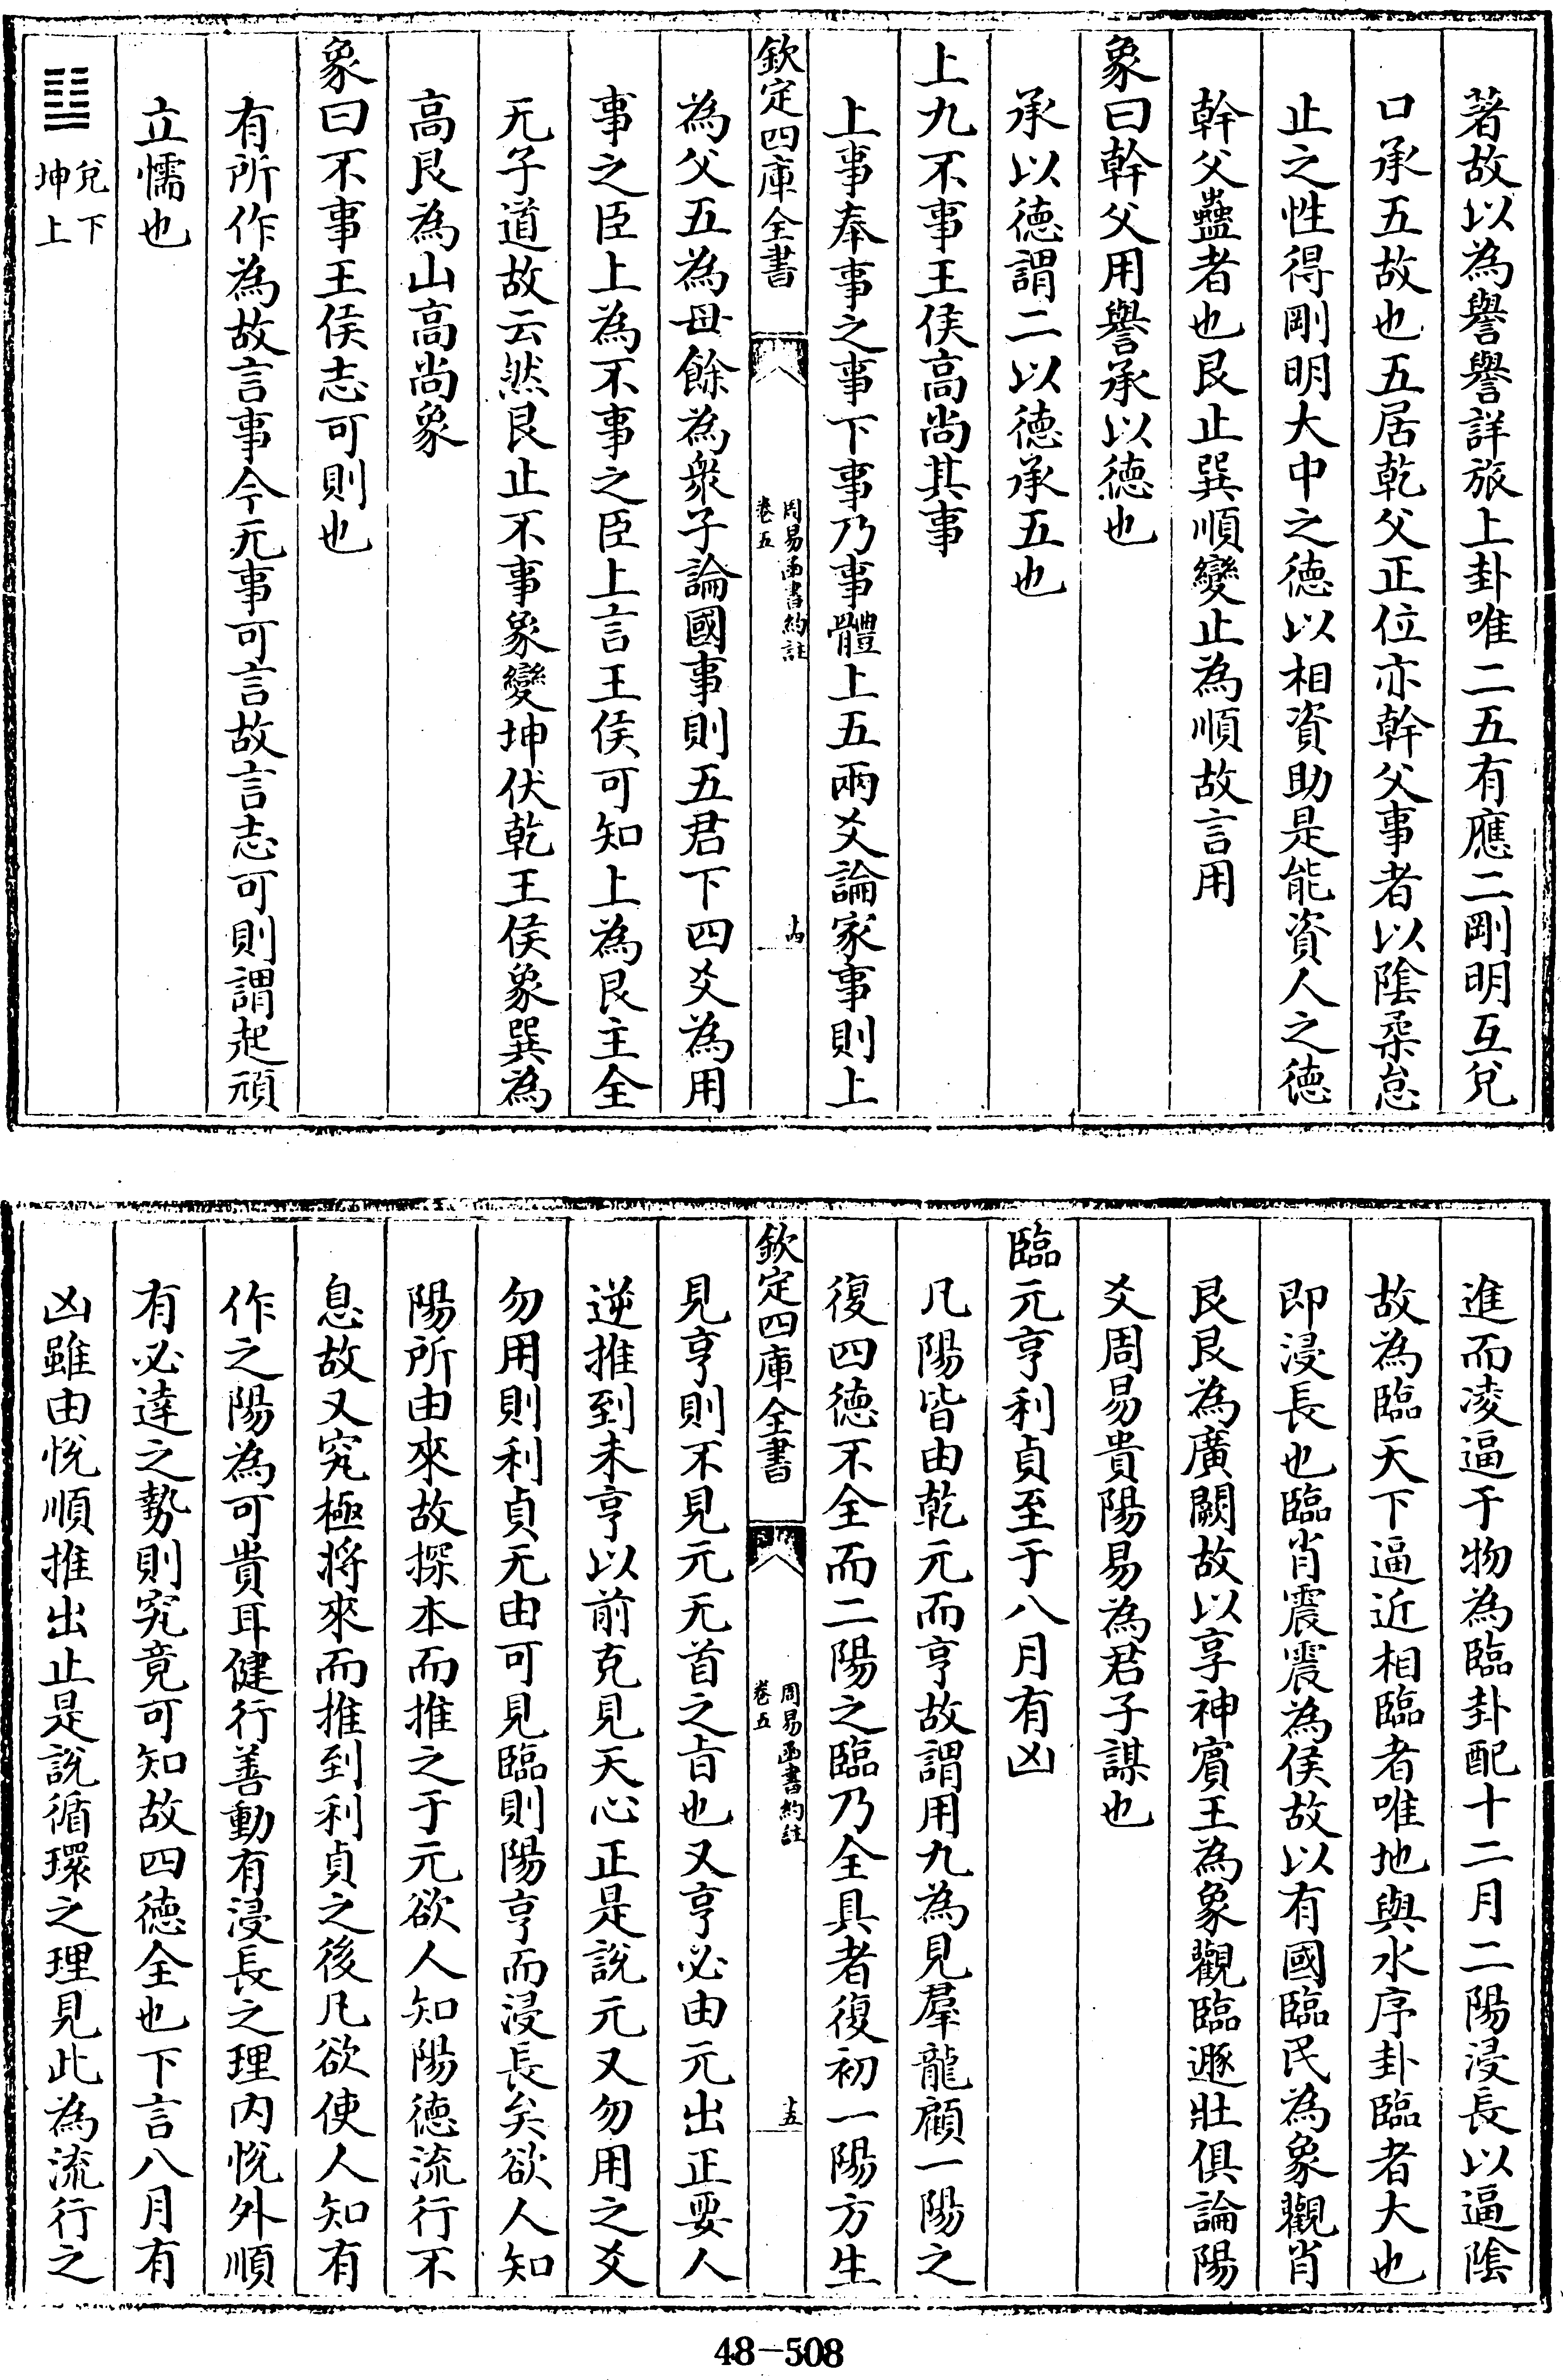 著故以為譽譽詳旅上卦唯二五有應二剛明互兌
口承五故也五居乾父正位亦幹父事者以隂柔怠
止之性得剛明大中之徳以相資助是能資人之徳
幹父蠱者也艮止巽順變止為順故言用
象曰幹父用譽承以徳也
承以徳謂二以徳承五也
上九不事王侯高尚其事
上事奉事之事下事乃事體上五兩爻論家事則上
欽定四庫全書
周易函書約註
卷五
十四
為父五為母餘為衆子論國事則五君下四爻為用
事之臣上為不事之臣上言王侯可知上為艮主全
无子道故云然艮止不事象變坤伏乾王侯象巽為
高艮為山高尚象
象曰不事王侯志可則也
有所作為故言事今无事可言故言志可則謂起頑
立懦也
䷒
兌下
坤上
進而凌逼于物為臨卦配十二月二陽浸長以逼隂
故為臨天下逼近相臨者唯地與水序卦臨者大也
即浸長也臨肖震震為侯故以有國臨民為象觀肖
艮艮為廣闕故以享神賓王為象觀臨遯壯俱論陽
爻周易貴陽易為君子謀也
臨元亨利貞至于八月有凶
凡陽皆由乾元而亨故謂用九為見羣龍顧一陽之
復四徳不全而二陽之臨乃全具者復初一陽方生
欽定四庫全書
周易函書約註
卷五
十五
見亨則不見元无首之㫖也又亨必由元出正要人
逆推到未亨以前克見天心正是說元又勿用之爻
勿用則利貞无由可見臨則陽亨而浸長矣欲人知
陽所由來故探本而推之于元欲人知陽徳流行不
息故又究極將來而推到利貞之後凡欲使人知有
作之陽為可貴耳健行善動有浸長之理内悦外順
有必達之勢則究竟可知故四徳全也下言八月有
凶雖由悦順推出止是說循環之理見此為流行之
48-508